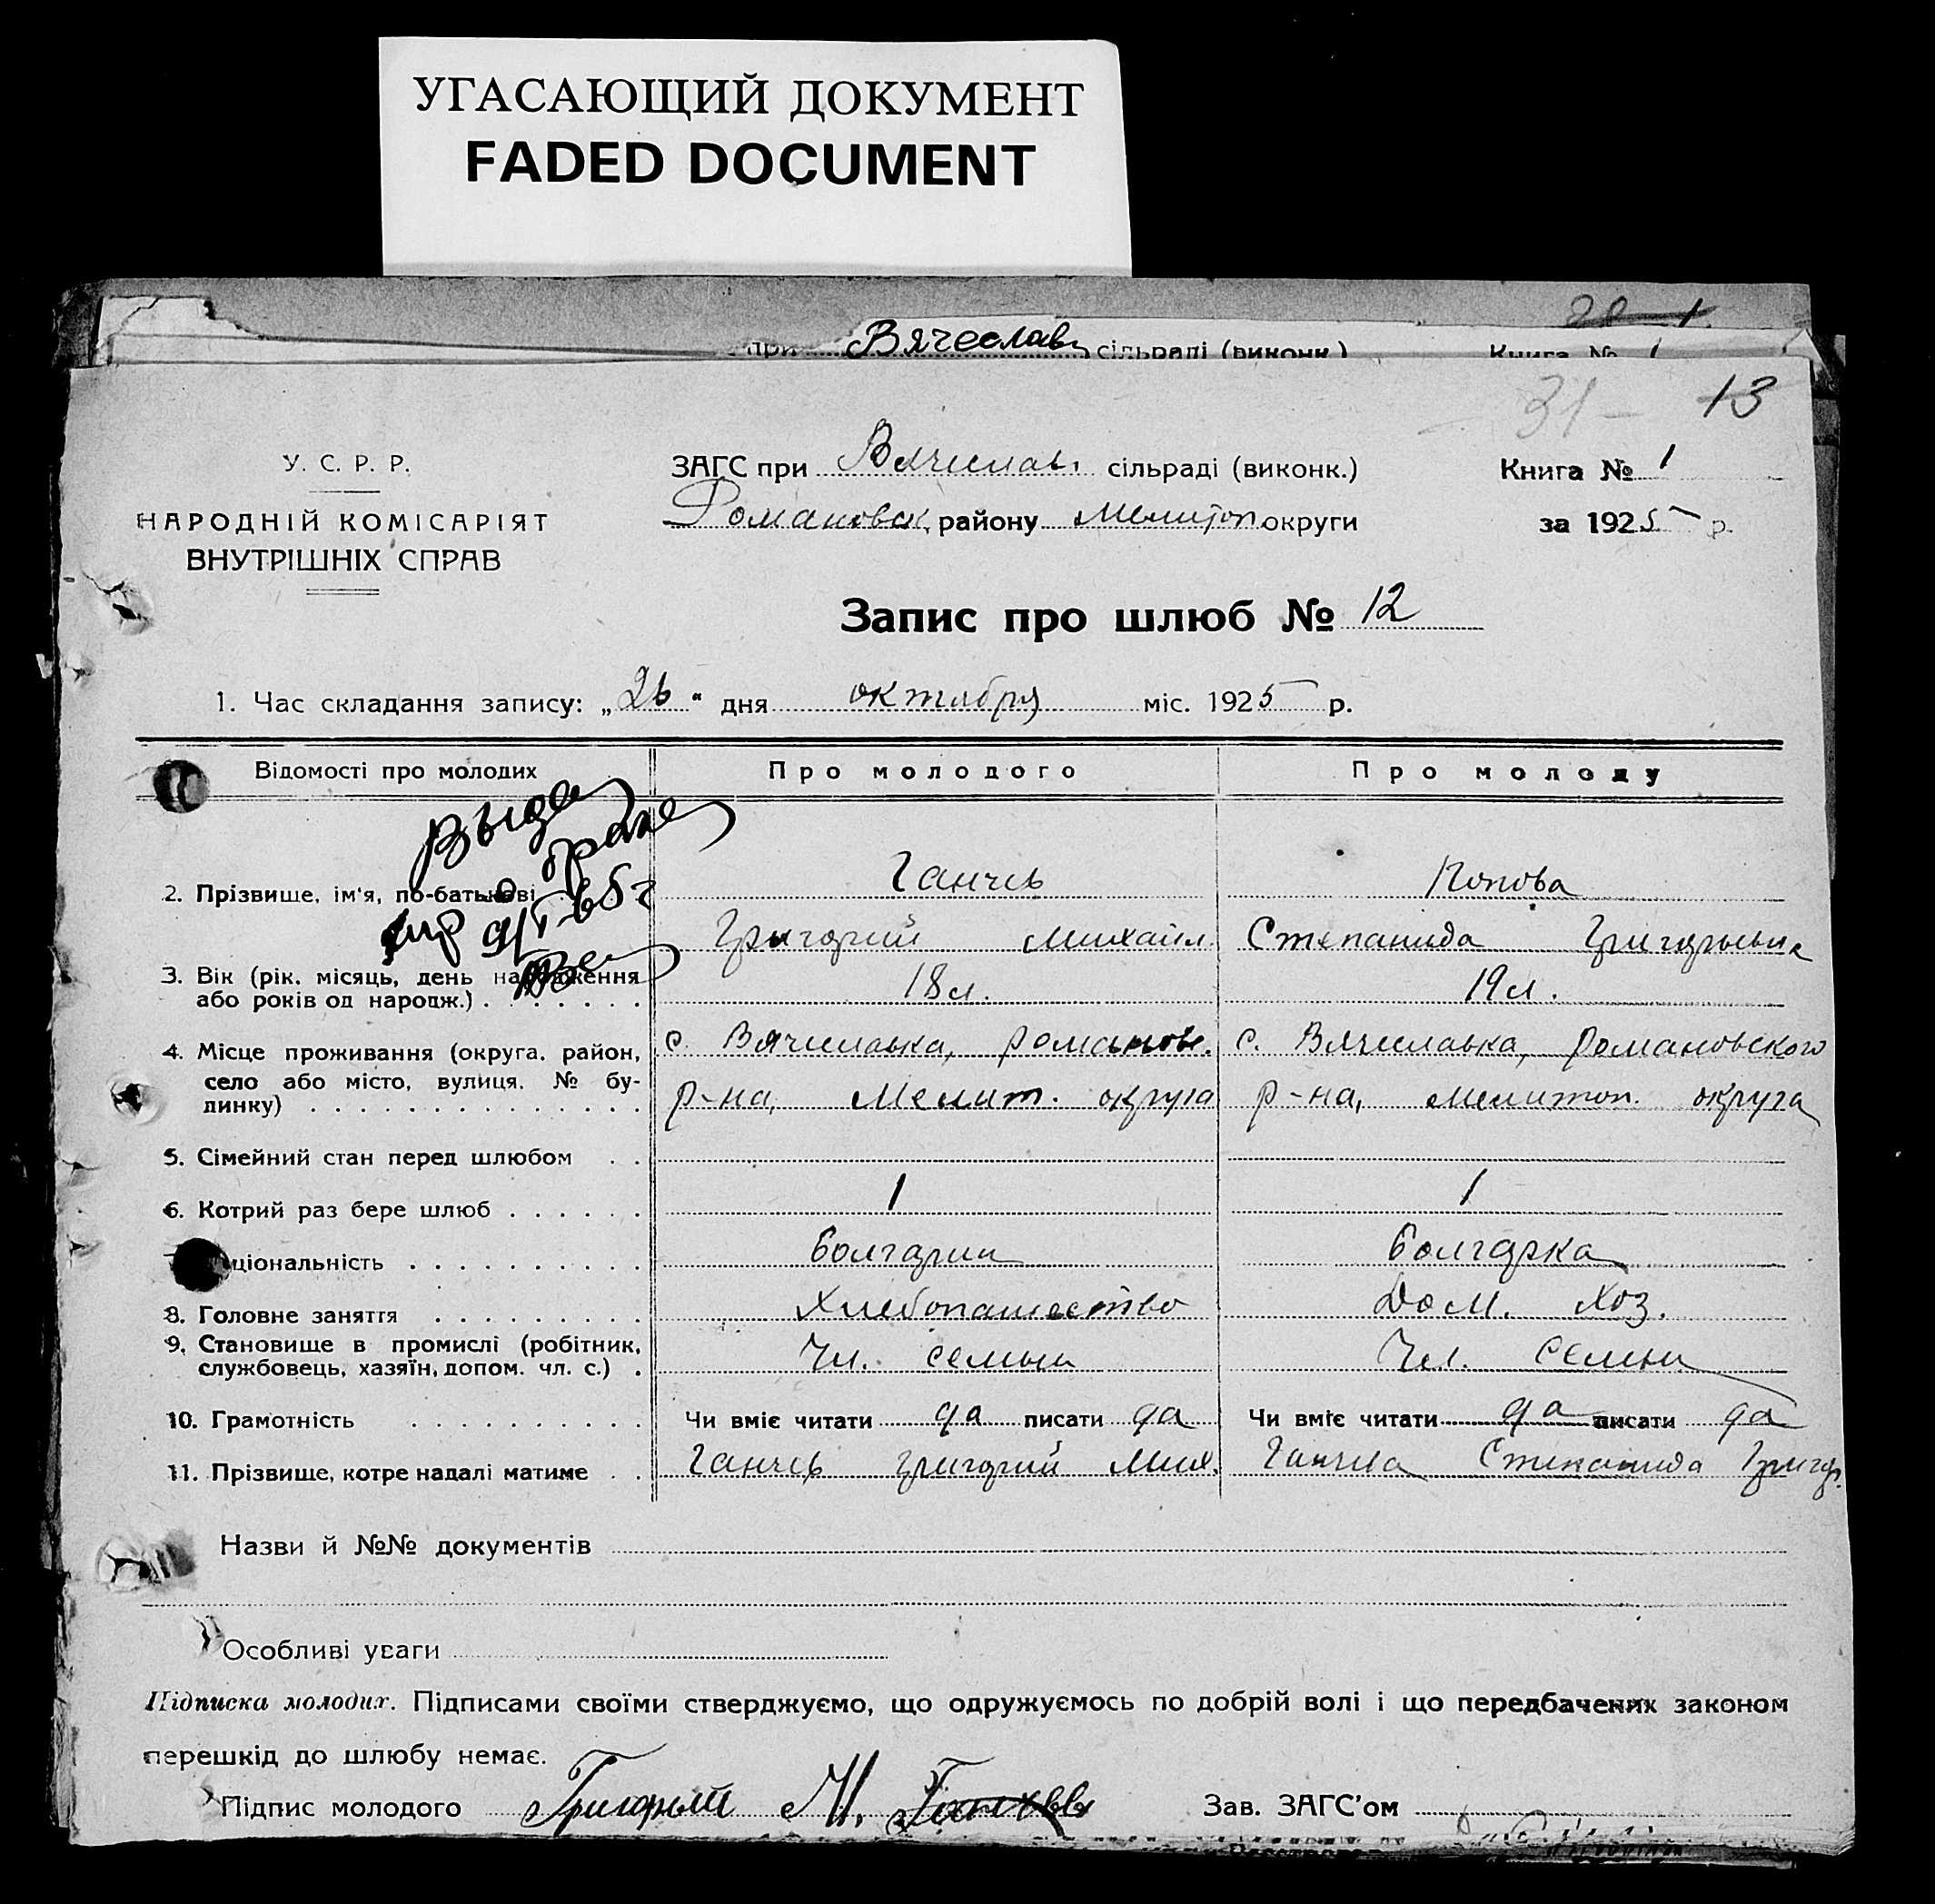 УГАСАЮЩИЙ ДОКУМЕНТ
FADED DOCUMENT
при Вячеслав сільраді (виконк.) Книга № 1
31 – 13
У. С. Р. Р.
НАРОДНІЙ КОМІСАРІЯТ
ВНУТРІШНІХ СПРАВ
ЗАГС при Вячеслав. сільраді (виконк.) Книга № 1
Романовск. району Мелитоп. округи за 1925 р.
Запис про шлюб № 12
1. Час складання запису: „26“ дня октября міс. 1925 р.
Відомості про молодих Про молодого Про молоду
2. Прізвище, ім'я, по-батькові
Ганчев Попова
Григорий Михайл. Степанида Григорьевн
3. Вік (рік, місяць, день народження
або років од народж.) 18 л. 19 л.
4. Місце проживання (округа, район,
село або місто, вулиця, № бу-
динку)
с. Вячеславка, Романовс. с. Вячеславка, Романовского
р-на, Мелит. округа р-на, Мелитоп. округа
5. Сімейний стан перед шлюбом
6. Котрий раз бере шлюб 1 1
ціональність болгарин болгарка
8. Головне заняття Хлебопашество Дом. хоз.
9. Становище в промислі (робітник,
службовець, хазяїн, допом. чл. с.) Чл. семьи Чл. семьи
10. Грамотність Чи вміє читати да писати да Чи вміє читати да писати да
11. Прізвище, котре надалі матиме Ганчев Григорий Мих. Ганчева Степанида Григор.
Назви й №№ документів
Особливі уваги
Підписка молодих. Підписами своїми стверджуємо, що одружуємось по добрій волі і що передбачених законом
перешкід до шлюбу немає.
Підпис молодого Григорий М. Ганчевъ Зав. ЗАГС'ом